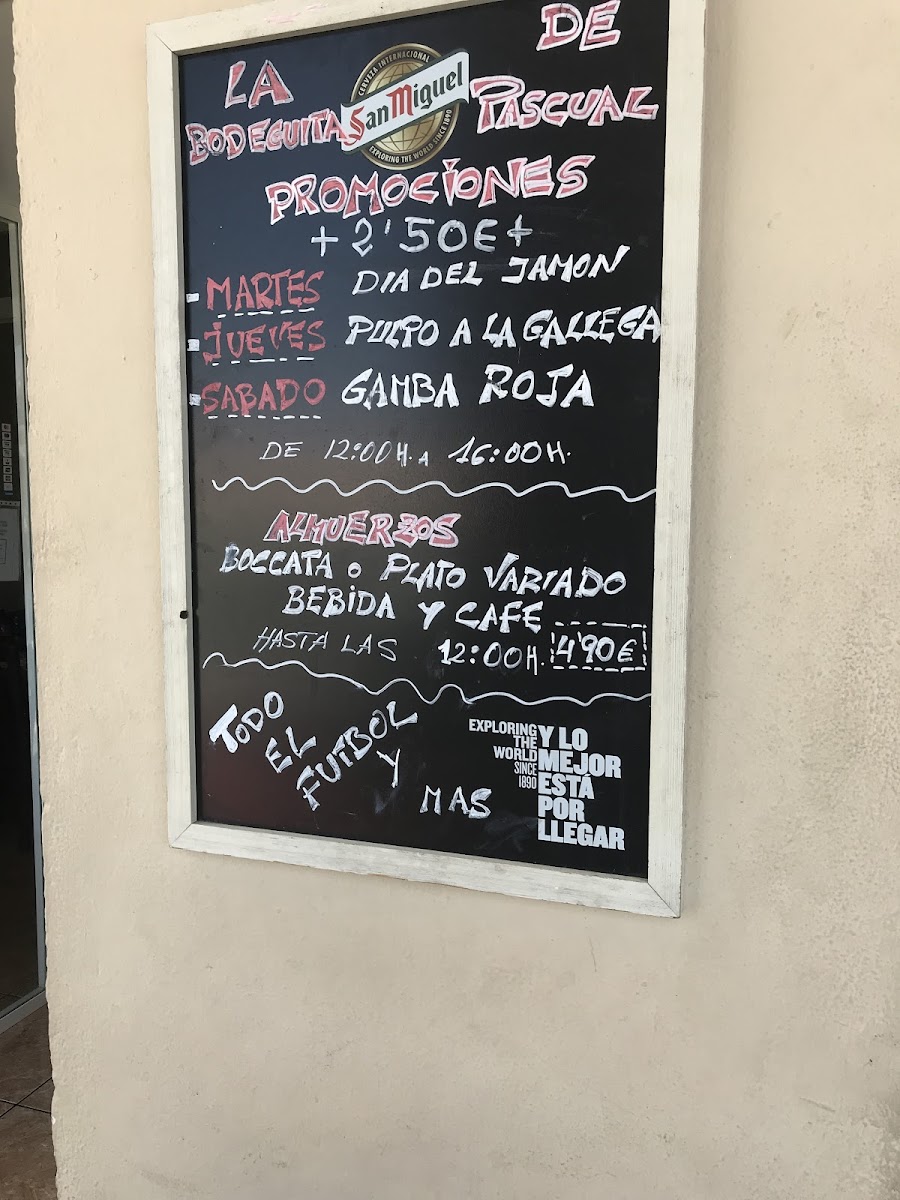 LA DE
BODEGUITA PASCUAL
CERVEZA INTERNACIONAL
San Miguel
EXPLORING THE WORLD SINCE 1890
PROMOCIONES
+ 2'50€ +
- MARTES DIA DEL JAMON
- JUEVES PULPO A LA GALLEGA
- SABADO GAMBA ROJA
DE 12:00H. A 16:00H.
ALMUERZOS
BOCCATA O PLATO VARIADO
BEBIDA Y CAFE
HASTA LAS 12:00H. 4'90€
TODO
EL
FUTBOL
Y
MAS
EXPLORING
THE
WORLD
SINCE
1890
Y LO
MEJOR
ESTÁ
POR
LLEGAR